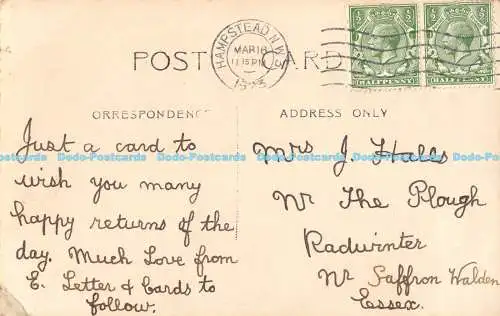 POST CARD
HAMPSTEAD. N.W.3
MAR 18
11.15 PM
HALFPENNY
HALFPENNY
ORRESPONDENCE
ADDRESS ONLY
Just a card to
wish you many
happy returns of the
day. Much Love from
E. Letter & Cards to
follow.
Mrs J. Halls
Nr The Plough
Radwinter
Nr Saffron Walden
Essex.
Dodo-Postcards Dodo-Postcards Dodo-Postcards Dodo-Postcards Dodo-Postcards